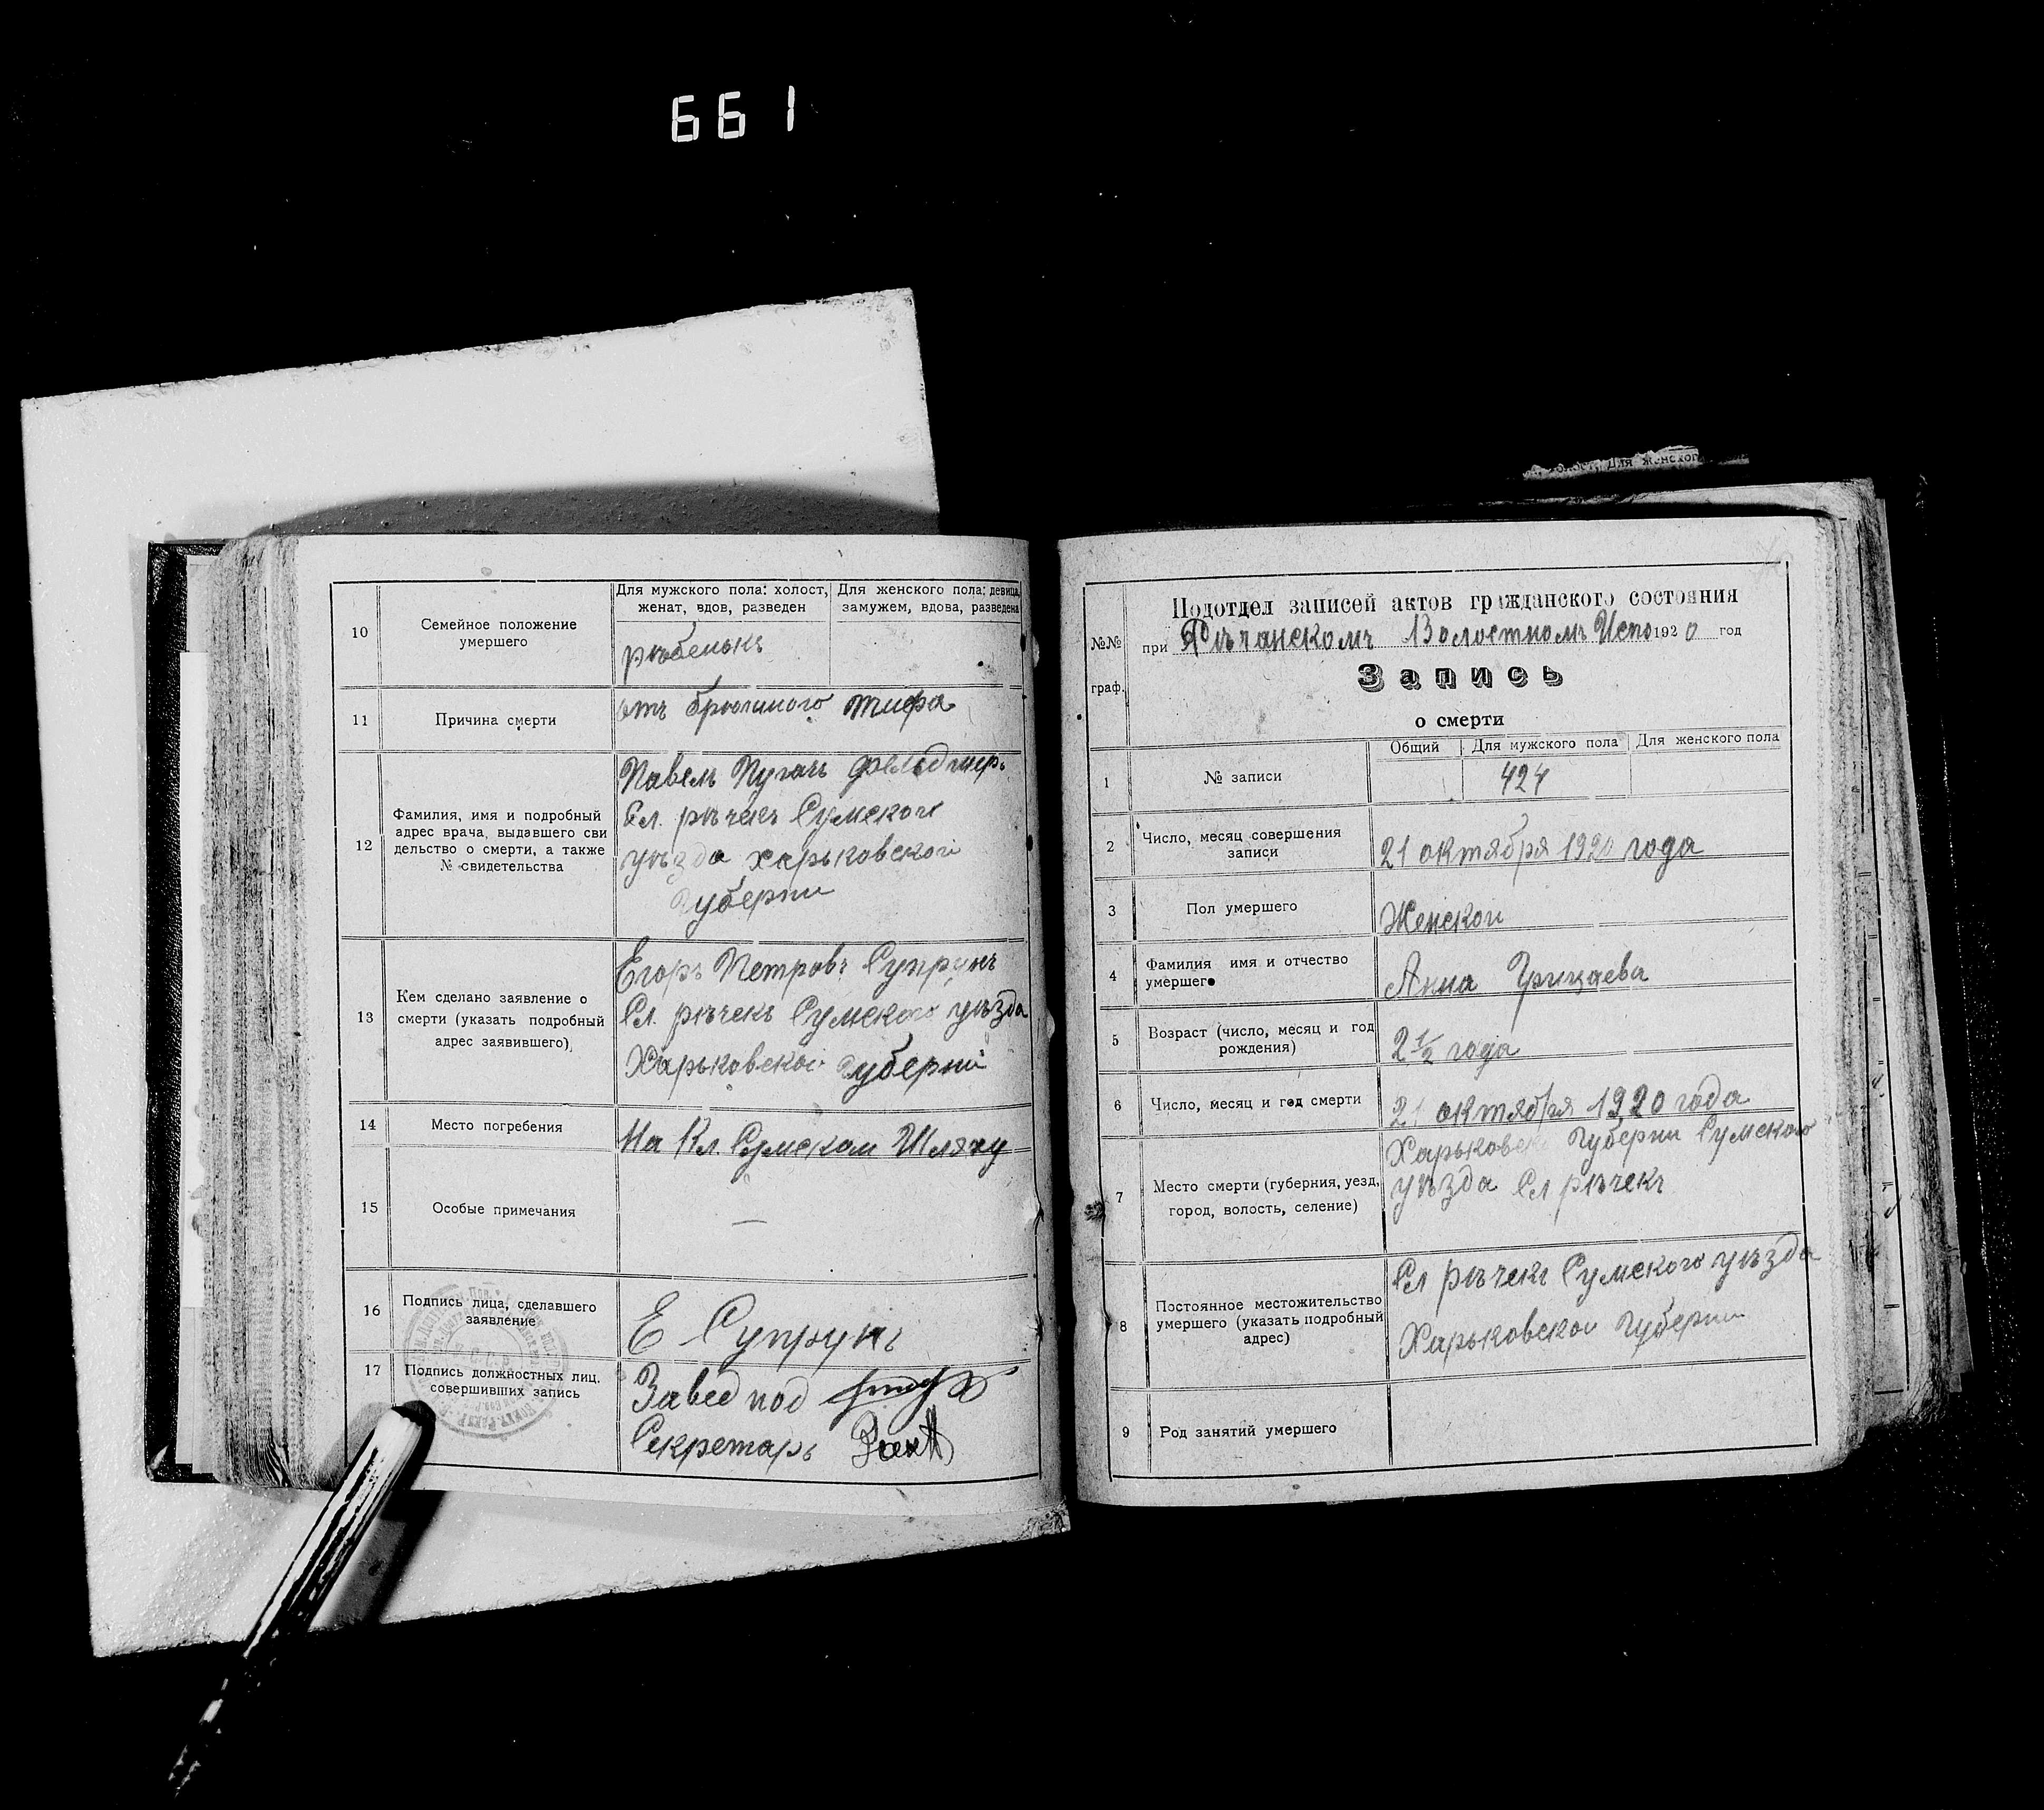 661
10
Семейное положение
умершего
Для мужского пола: холост,
женат, вдов, разведен
Для женского пола: девица,
замужем, вдова, разведена
рѣбенокъ
11
Причина смерти
отъ брюшного тифа
12
Фамилия, имя и подробный
адрес врача, выдавшего сви
дельство о смерти, а также
№ свидетельства
Павелъ Пугачъ фельдшеръ
Сл. рѣчекъ Сумской
уѣзда харьковской
губерни
13
Кем сделано заявление о
смерти (указать подробный
адрес заявившего)
Егоръ Петровъ Супрунъ
Сл. рѣчекъ Сумского уѣзда
Харьковской губерни
14
Место погребения
На Кл. Сумском Шляху
15
Особые примечания
—
16
Подпись лица, сделавшего
заявление
Е Супрунъ
17
Подпись должностных лиц,
совершивших запись
Завед под
Секретарь
№№
граф.
Подотдел записей актов гражданского состояния
при Рѣчанскомъ Волостномъ Испо 1920 год
Запись
о смерти
Общий
Для мужского пола
Для женского пола
1
№ записи
424
2
Число, месяц совершения
записи
21 октября 1920 года
3
Пол умершего
Женской
4
Фамилия имя и отчество
умершего
Анна Грицаева
5
Возраст (число, месяц и год
рождения)
2 1/2 года
6
Число, месяц и год смерти
21 октября 1920 года
7
Место смерти (губерния, уезд,
город, волость, селение)
Харьковской губерни Сумского
уѣзда Сл рѣчекъ
8
Постоянное местожительство
умершего (указать подробный
адрес)
Сл рѣчекъ Сумского уѣзда
Харьковской губерни
9
Род занятий умершего